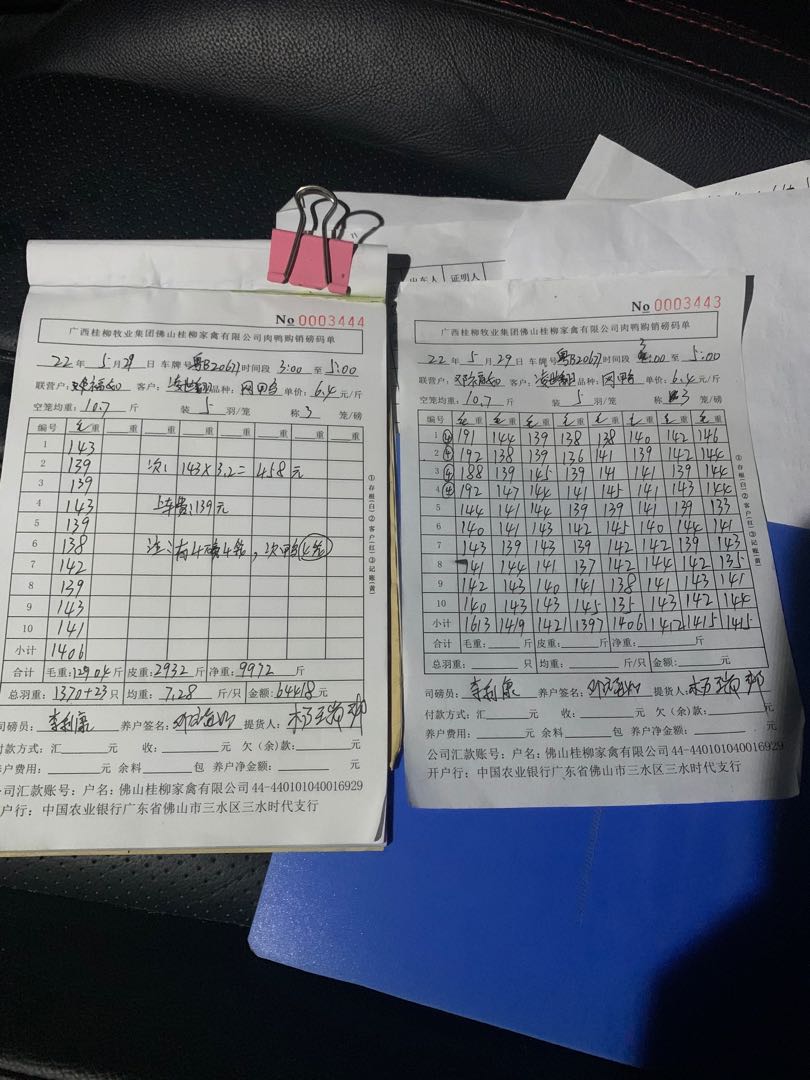 出车人 证明人
No 0003444
广西桂柳牧业集团佛山桂柳家禽有限公司肉鸭购销磅码单
22年 5月29日 车牌号 粤B20671 时间段 3:00 至 5:00
联营户: 客户: 品种: 网鸭 单价: 6.4元/斤
空笼均重: 10.7 斤 装 5 羽/笼 称 3 笼/磅
编号 毛重 __重 __重 __重 __重 __重 __重 __重
1 143
2 139 次: 143×3.2=458元
3 139
4 143 上车费:139元
5 139
6 138 注:有4磅4笼,次鸭4笼
7 142
8 139
9 143
10 141
小计 1406
合计 毛重:12904斤 皮重:2932斤 净重:9972斤
总羽重:1370+23只 均重:7.28斤/只 金额:64418元
司磅员:李利康 养户签名: 提货人:
付款方式:汇____元 收:____元 欠(余)款:____元
养户费用:____元 余料____包 养户净金额:____元
公司汇款账号:户名:佛山桂柳家禽有限公司 44-440101040016929
开户行:中国农业银行广东省佛山市三水区三水时代支行
①存根(白)②客户(红)③记账(黄)
No 0003443
广西桂柳牧业集团佛山桂柳家禽有限公司肉鸭购销磅码单
22年 5月29日 车牌号 粤B20671 时间段 3:00 至 5:00
联营户: 客户: 品种: 网鸭 单价: 6.4元/斤
空笼均重: 10.7 斤 装 5 羽/笼 称 3 笼/磅
编号 毛重 毛重 毛重 毛重 毛重 毛重 毛重 毛重
1 ④ 191 144 139 138 138 140 142 146
2 ④ 192 138 139 136 141 139 142 144
3 ④ 188 139 145 139 141 141 139 144
4 ④ 192 147 144 141 145 141 143 144
5 144 141 144 139 139 141 139 133
6 140 141 143 142 145 140 144 141
7 143 139 143 139 142 142 139 143
8 141 144 141 137 142 144 142 135
9 142 143 140 141 138 141 143 141
10 140 143 143 145 135 143 142 144
小计 1613 1419 1421 1397 1406 1412 1415 1415
合计 毛重:____斤 皮重:____斤 净重:____斤
总羽重:____只 均重:____斤/只 金额:____元
司磅员:李利康 养户签名: 提货人:
付款方式:汇____元 收:____元 欠(余)款:____元
养户费用:____元 余料____包 养户净金额:____元
公司汇款账号:户名:佛山桂柳家禽有限公司 44-440101040016929
开户行:中国农业银行广东省佛山市三水区三水时代支行
①存根(白)②客户(红)③记账(黄)